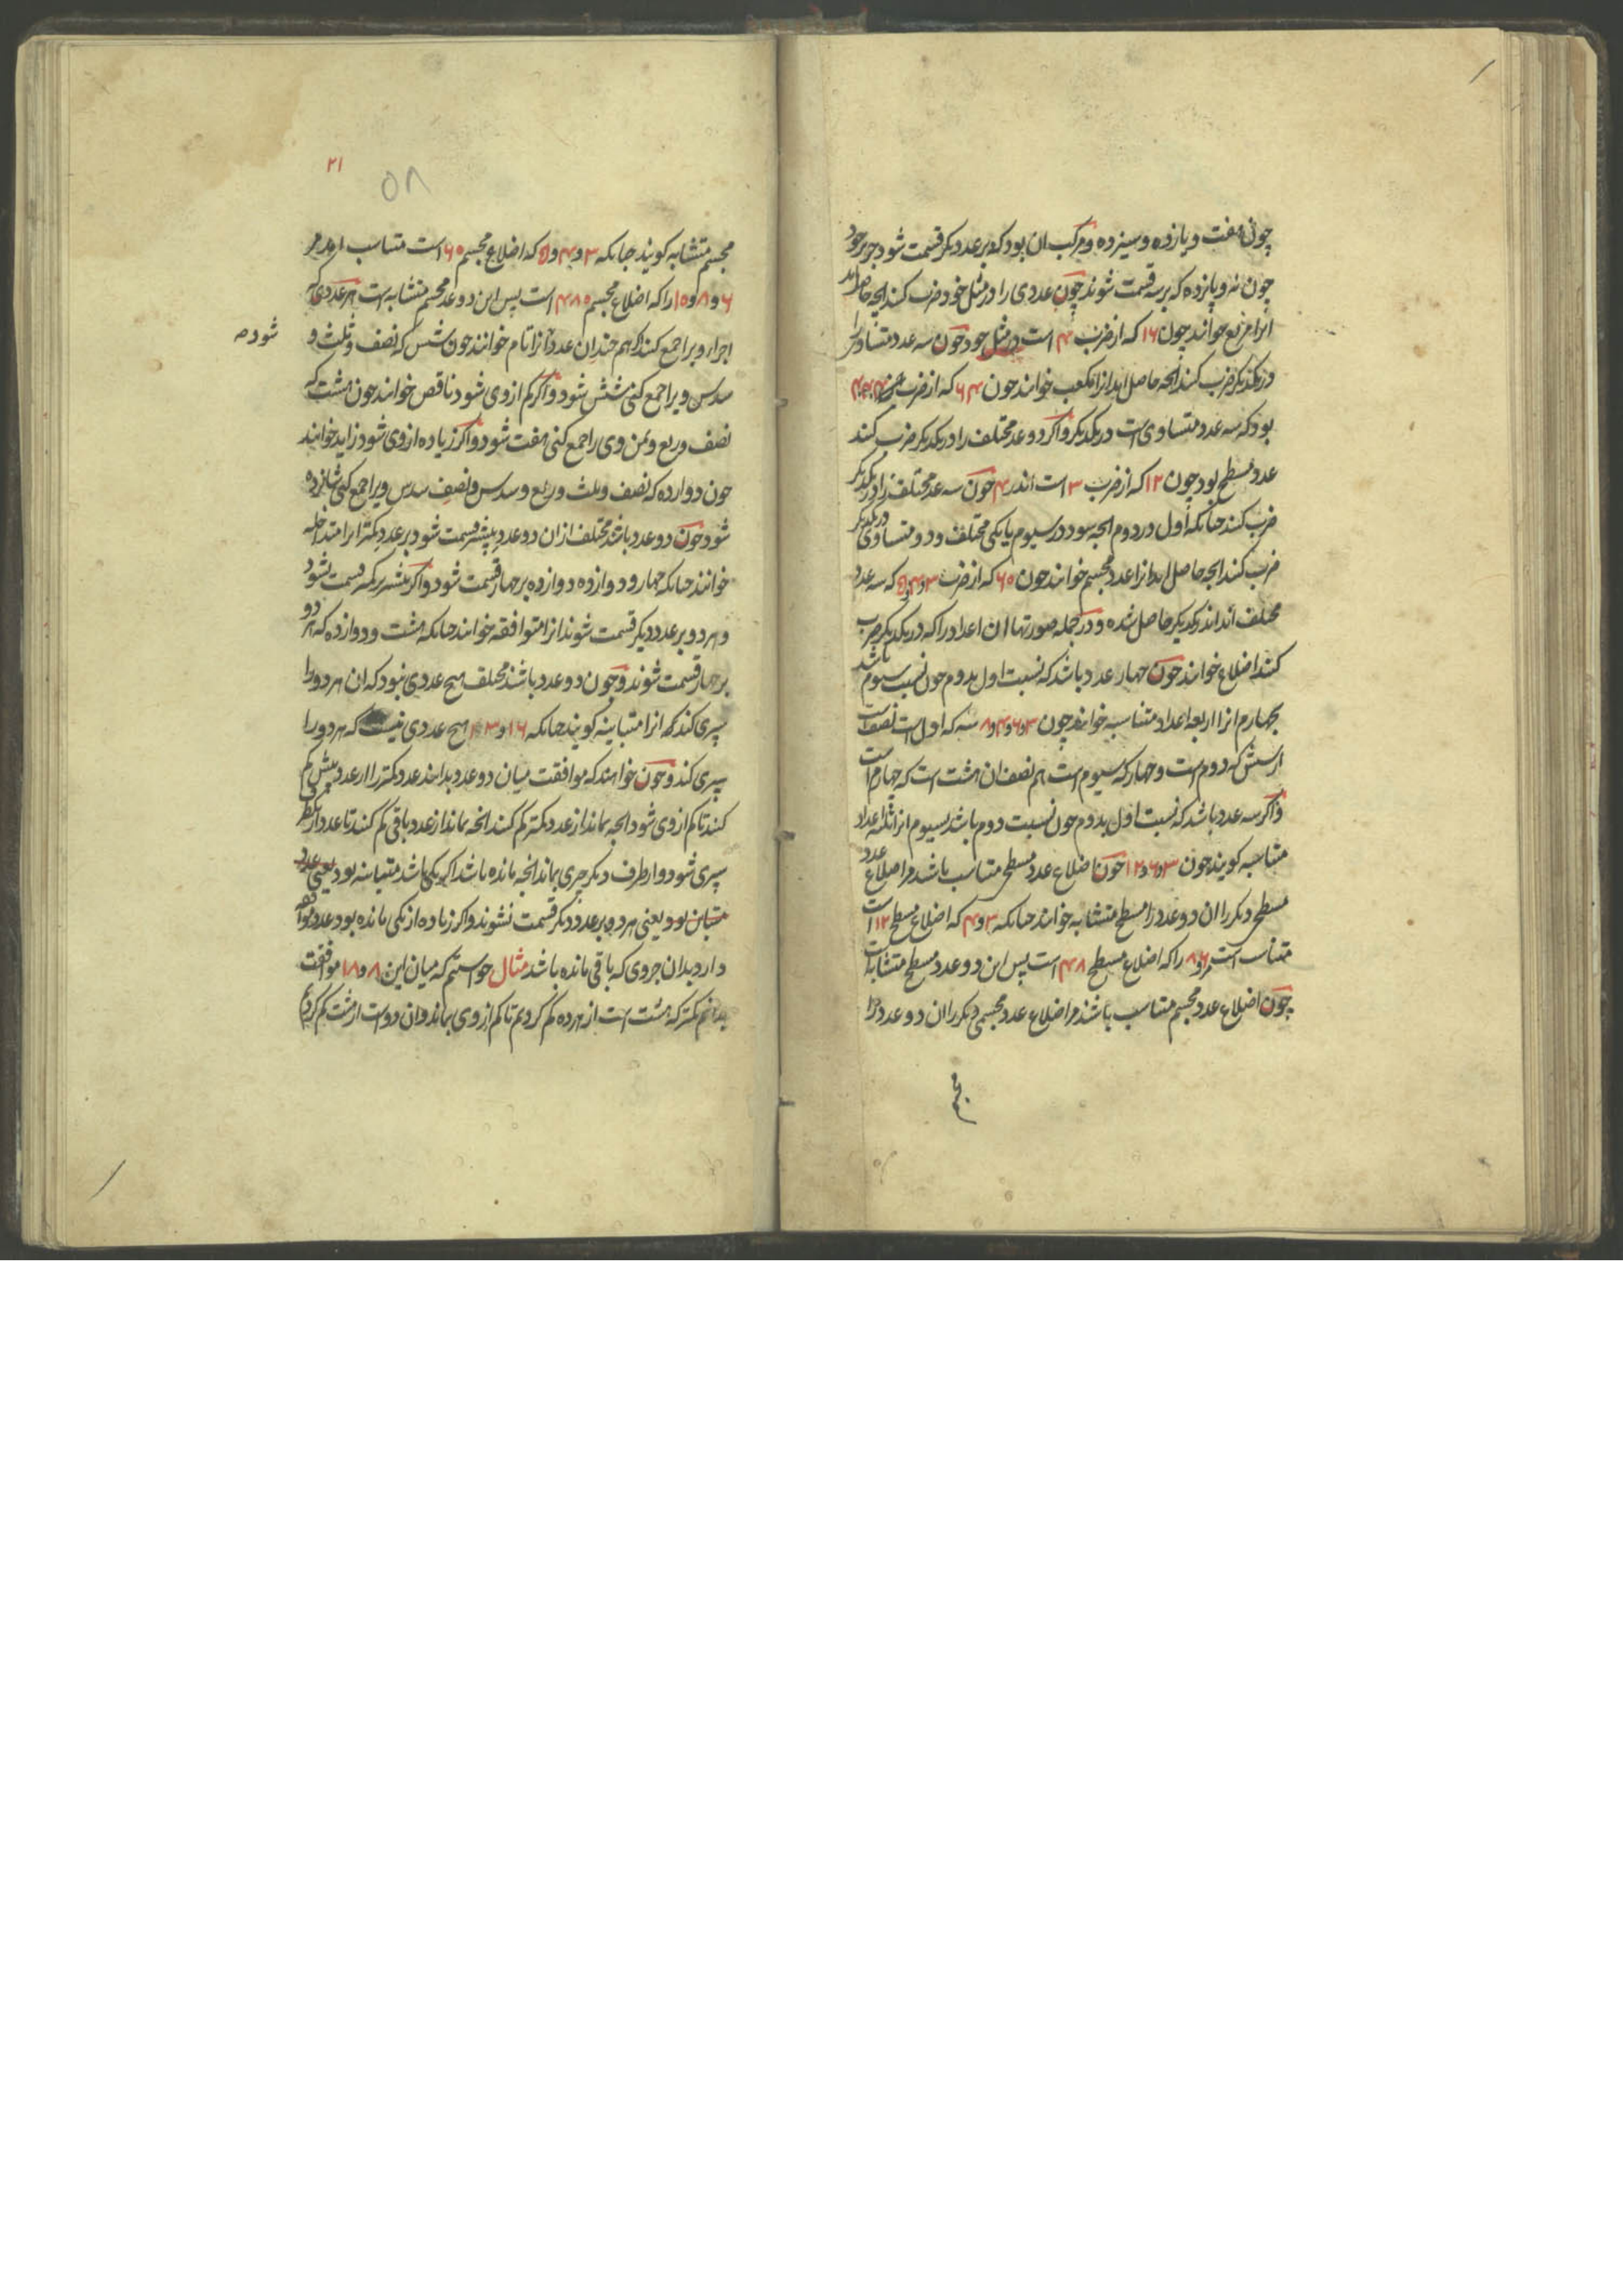 چون هفت و یازده و سیزده و مرکب ان بود که بر عدد دیکر قسمت شود جز بر خود
چون نه و پانزده که بر سه قسمت شوند چون عددی را در مثل خود ضرب کنند انچه حاصل اید
انرا مربع خوانند چون ۱۶ که از ضرب ۴ است در مثل خود چون سه عدد متساوی را
در یکدیکر ضرب کنند انچه حاصل اید انرا مکعب خوانند چون ۶۴ که از ضرب ۴ ۴ ۴
بود که سه عدد متساوی است در یکدیکر و اکر دو عدد مختلف را در یکدیکر ضرب کنند
عدد مسطح بود چون ۱۲ که از ضرب ۳ است اندر ۴ چون سه عدد مختلف را در یکدیکر
ضرب کنند چنانکه اول در دوم انچه بود در سیوم یا یکی مختلف و دو متساوی در یکدیکر
ضرب کنند انچه حاصل اید انرا عدد مجسم خوانند چون ۶۰ که از ضرب ۳ و ۴ و ۵ که سه عدد
مختلف اند اندر یکدیکر حاصل شده و در جمله صورتها ان اعداد را که در یکدیکر ضرب
کنند اضلاع خوانند چون چهار عدد باشد که نسبت اول بدوم چون نسبت سیوم باشد
بچهارم انرا اربعه اعداد متناسبه خوانند چون ۳ و ۶ و ۴ و ۸ سه که اول است نصف است
از شش که دوم است و چهار که سیوم است هم نصف ان هشت است که چهارم است
و اکر سه عدد باشد که نسبت اول بدوم چون نسبت دوم باشد بسیوم انرا ثلثه اعداد
متناسبه کویند چون ۳ و ۶ و ۱۲ چون اضلاع عدد مسطح متناسب باشد مر اضلاع عدد
مسطح دیکر را ان دو عدد را مسطح متشابه خوانند چنانکه ۳ و ۴ که اضلاع مسطح ۱۲ است
متناسب است مر ۶ و ۸ را که اضلاع مسطح ۴۸ است پس این دو عدد مسطح متشابه است
چون اضلاع عدد مجسم متناسب باشد مر اضلاع عدد مجسمی دیکر را ان دو عدد را
۲۱
۵۸
مجسم متشابه کویند چنانکه ۳ و ۴ و ۵ که اضلاع مجسم ۶۰ است متناسب اند مر
۶ و ۸ و ۱۰ را که اضلاع مجسم ۴۸۰ است پس این دو عدد مجسم متشابه است هر عددی که
اجزاء ویرا جمع کنند هم چندان عدد انرا تام خوانند چون شش که نصف و ثلث و
شود صه
سدس ویرا جمع کنی شش شود و اکر کم از وی شود ناقص خوانند چون هشت که
نصف و ربع و ثمن وی را جمع کنی هفت شود و اکر زیاده از وی شود زاید خوانند
چون دوازده که نصف و ثلث و ربع و سدس و نصف سدس ویرا جمع کنی شانزده
شود چون دو عدد باشد مختلف از ان دو عدد بیشتر قسمت شود بر عدد کمتر انرا متداخله
خوانند چنانکه چهار و دوازده دوازده بر چهار قسمت شود و اکر بیشتر بر کمتر قسمت نشود
و هر دو بر عدد دیکر قسمت شوند انرا متوافقه خوانند چنانکه هشت و دوازده که هر دو
بر چهار قسمت شوند و چون دو عدد باشند مختلف هیچ عددی نبود که ان هر دو را
سپری کند انرا متباینه کویند چنانکه ۱۶ و هیچ عددی نیست که هر دو را
سپری کند و چون خواهند که موافقت میان دو عدد بدانند عدد کمتر را از عدد بیش کم
کنند تا کم از وی شود انچه بماند از عدد کمتر کم کنند انچه بماند از عدد باقی کم کنند تا عدد از یکطرف
سپری شود و از طرف دیکر چیزی بماند انچه مانده باشد اکر یکی باشد متباینه بود یعنی عدد
متباین بود یعنی هر دو بر عدد دیکر قسمت نشوند و اکر زیاده از یکی مانده بود عدد موافقه
دارد بدان جزوی که باقی مانده باشد مثال خواستیم که میان این ۸ و ۱۸ موافقت
بدانیم کمتر که هشت است از هژده کم کردیم تا کم از وی بماند و ان دو است از هشت کم کردیم